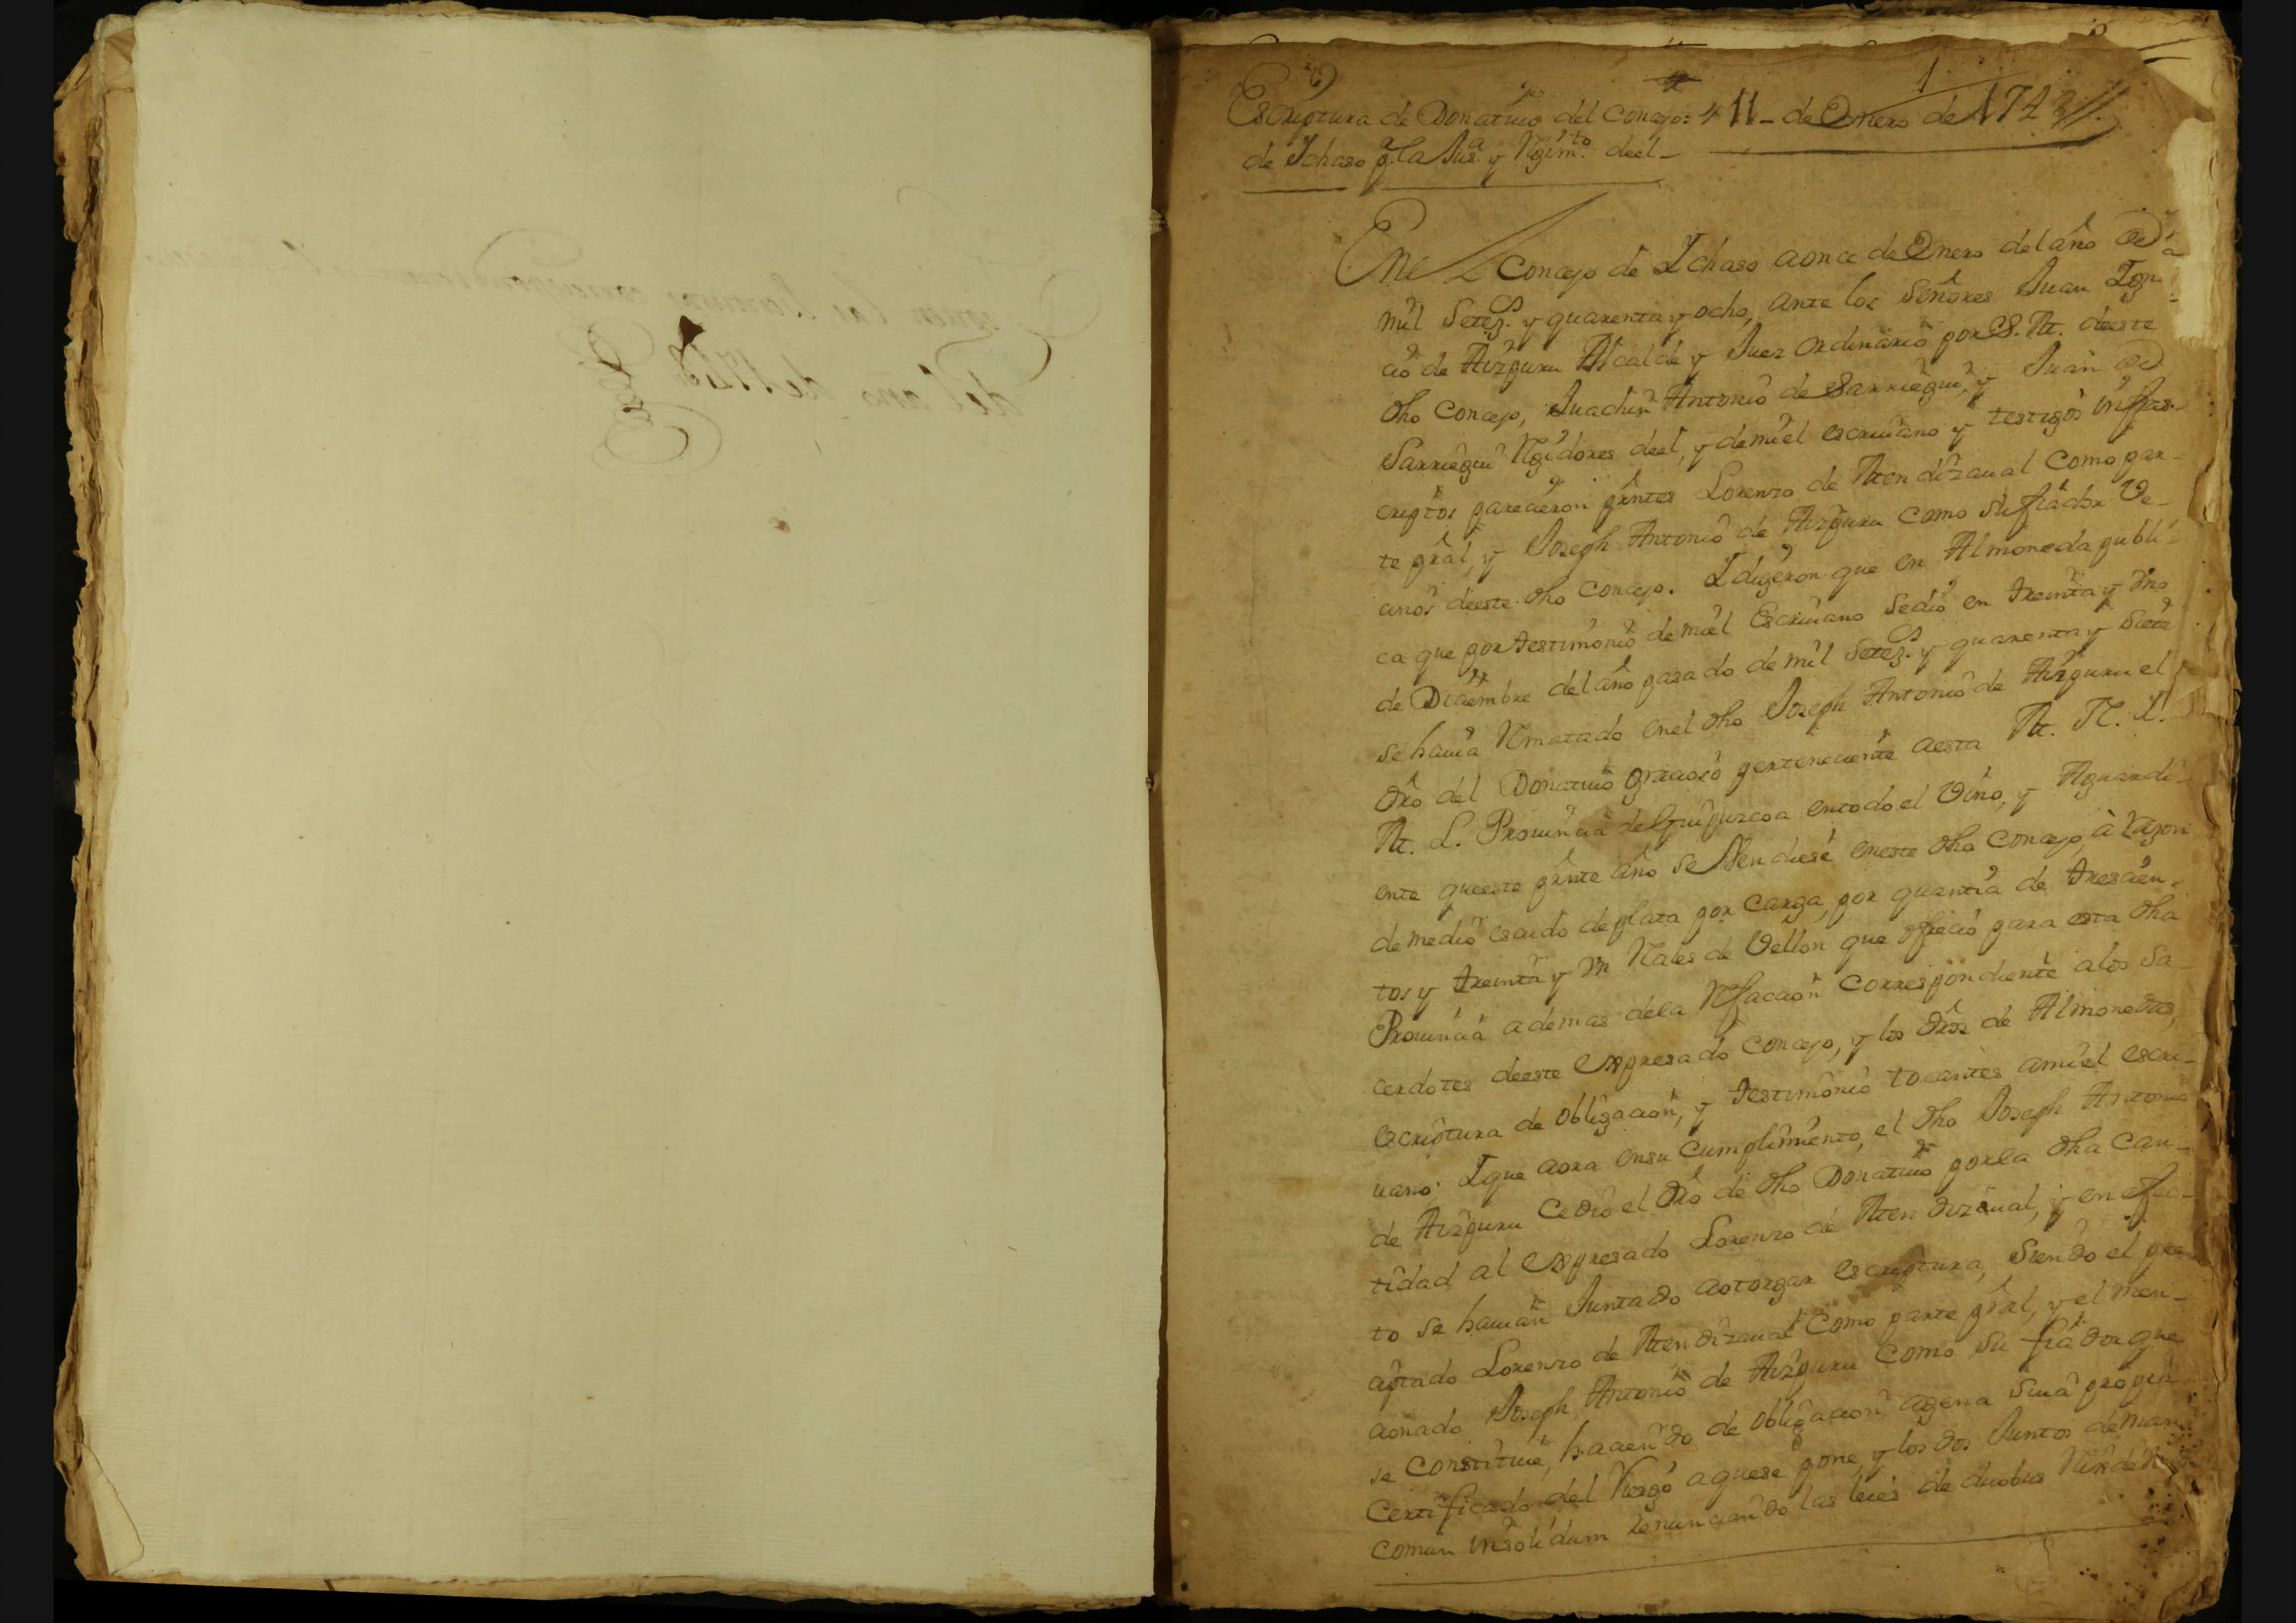 1
Escriptura de Donativo del Concejo: 11 - de Enero de 1748
de Ychaso pr. la Jusa. y Rgimto. deel -
Enel Concejo de Ychaso a once de Enero del año de
mil Setezs. y quarenta y ocho, ante los Señores Juan Igna-
cio de Aizpuru Alcalde y Juez ordinario por S. M. deeste
dho Concejo, Juachin Antonio de Sarriegui, y Juan de
Sarriegui Rgidores deel, y demi el escrivano y testigos infras-
criptos parecieron prntes Lorenzo de Mendizaual como par-
te prâl, y Joseph Antonio de Aizpuru como su fiador Ve-
cinos deeste dho Concejo. Y digeron que en Almoneda publi-
ca que por testimonio de miel Escrivano sedio en treinta y uno
de Diciembre del año pasado de mil Setezs. y quarenta y Siete
se havia Rmatado enel dho Joseph Antonio de Aizpuru el
dro del Donativo gracioso perteneciente aesta M. N. Y.
M. L. Provincia de Guipuzcoa entodo el Vino, y Aguardi-
ente queeste prnte año se Vendiese eneste dho Concejo, à razon
de medio escudo de plata por Carga, por quantia de trescien-
tos y treinta y un Rales de Vellon que ofrecio para esta dha
Provincia ademas dela Rfaccion Correspondiente alos Sa-
cerdotes deeste expresado Concejo, y los dros de Almonedas,
escriptura de obligacion, y testimonio tocantes amiel escri-
vano. Yque aora ensu Cumplimiento, el dho Joseph Antonio
de Aizpuru Cedio el dro de dho Donativo porla dha Can-
tidad al expresado Lorenzo de Mendizaual, y en efec-
to se havian Juntado aotorgar escriptura, Siendo el pre-
citado Lorenzo de Mendizaual como parte prâl, y el men-
cionado Joseph Antonio de Aizpuru como su fiador que
se Constituie, haciendo de obligacion agena Suia propia
Certificado del Riesgo aquese pone, y los dos Juntos de man
comun insolidum renunciando las leies de duobus